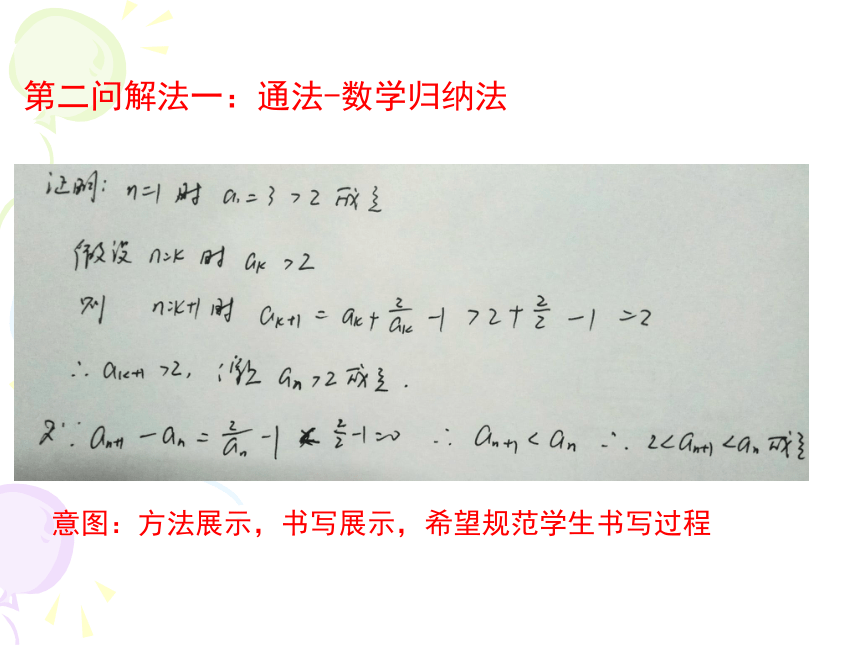 第二问解法一：通法-数学归纳法
证明: n=1 时 a₁=3>2 成立
假设 n=k 时 aₖ>2
则 n=k+1 时 aₖ₊₁ = aₖ + 2/aₖ - 1 > 2 + 2/2 - 1 = 2
∴ aₖ₊₁ >2, 综 aₙ>2 成立.
又∵ aₙ₊₁ - aₙ = 2/aₙ - 1 < 2/2 - 1 = 0 ∴ aₙ₊₁ < aₙ ∴ 2<aₙ₊₁<aₙ 成立
意图：方法展示，书写展示，希望规范学生书写过程